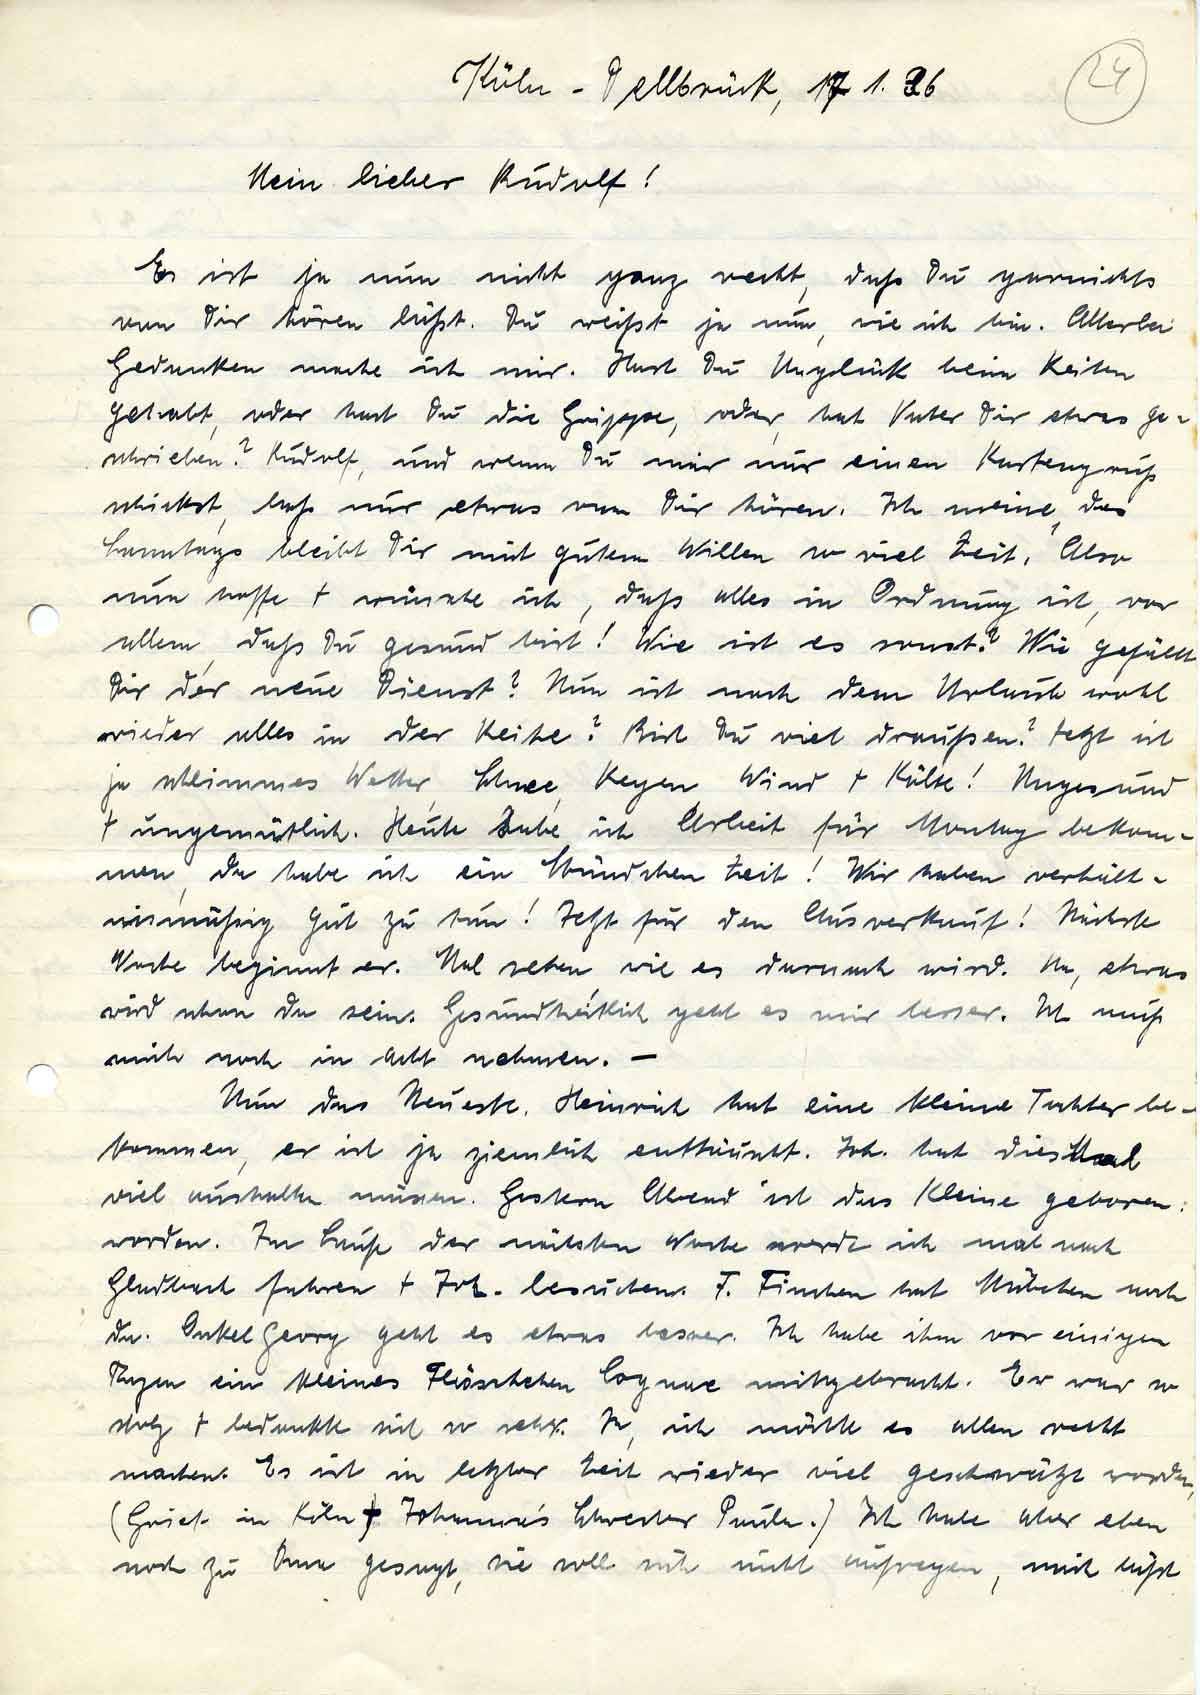 24
Köln-Dellbrück, 17. 1. 36
Mein lieber Rudolf!
Es ist ja nun nicht ganz recht, daß Du garnichts
von Dir hören läßt. Du weißt ja nun, wie ich bin. Allerlei
Gedanken mache ich mir. Hast Du Unglück beim Reiten
gehabt, oder hast Du die Grippe, oder, hat Vater Dir etwas ge-
schrieben? Rudolf, und wenn Du mir nur einen Kartengruß
schickst, laß nur etwas von Dir hören. Ich meine, des
Sonntags bleibt Dir mit gutem Willen so viel Zeit. Also
nun hoffe + wünsche ich, daß alles in Ordnung ist, vor
allem, daß Du gesund bist! Wie ist es sonst? Wie gefällt
Dir der neue Dienst? Nun ist nach dem Urlaub wohl
wieder alles in der Reihe? Bist Du viel draußen? Jetzt ist
ja schlimmes Wetter, Schnee, Regen Wind + Kälte! Ungesund
+ ungemütlich. Heute habe ich Arbeit für Montag bekom-
men, da habe ich ein Stündchen Zeit! Wir haben verhält-
nismäßig gut zu tun! Jetzt für den Ausverkauf! Nächste
Woche beginnt er. Mal sehen, wie es darnach wird. Na, etwas
wird schon da sein. Gesundheitlich geht es mir besser. Ich muß
mich noch in Acht nehmen. —
Nun das Neueste. Heinrich hat eine kleine Tochter be-
kommen, er ist ja ziemlich enttäuscht. Joh. hat diesmal
viel aushalten müssen. Gestern Abend ist das Kleine geboren
worden. Im Laufe der nächsten Woche werde ich mal nach
Gladbach fahren + Joh. besuchen. T. Finchen hat Mübchen noch
da. Onkel Georg geht es etwas besser. Ich habe ihm vor einigen
Tagen ein kleines Fläschchen Cognac mitgebracht. Er war so
stolz + bedankte sich so sehr. Ja, ich möchte es allen recht
machen. Es ist in letzter Zeit wieder viel geschwätzt worden,
(Griet in Köln + Johanna's Schwester Paula.) Ich habe aber eben
noch zu Oma gesagt, sie soll sich nicht aufregen, mich läßt